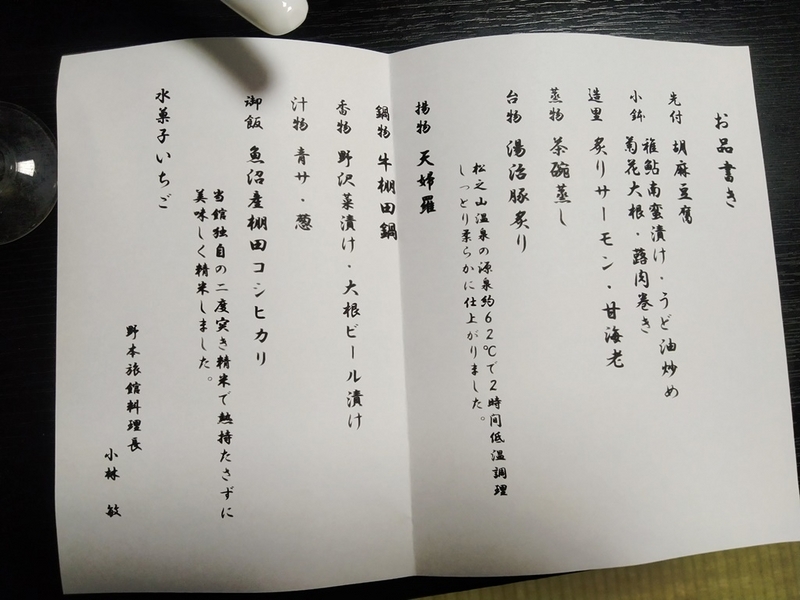 お品書き
先付 胡麻豆腐
小鉢 稚鮎南蛮漬け・うど油炒め
菊花大根・蕗肉巻き
造里 炙りサーモン・甘海老
蒸物 茶碗蒸し
台物 湯治豚炙り
松之山温泉の源泉約62℃で2時間低温調理
しっとり柔らかに仕上がりました。
揚物 天婦羅
鍋物 牛棚田鍋
香物 野沢菜漬け・大根ビール漬け
汁物 青サ・葱
御飯 魚沼産棚田コシヒカリ
当館独自の二度突き精米で熱持たさずに
美味しく精米しました。
水菓子いちご
野本旅館料理長
小林 敏